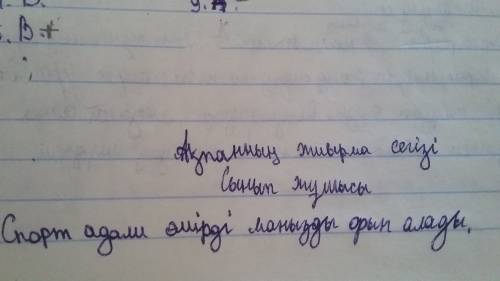 5. В +
Ақпанның жиырма сегізі
Сынып жұмысы
Спорт адами өмірді маңызды орын алады.